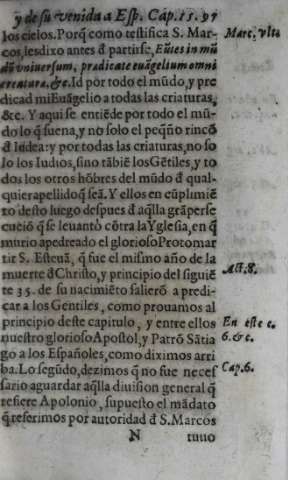 y de su venida a Esp. Cap. 15. 97
los cielos. Porq̃ como testifica S. Mar-
cos, les dixo antes d̃ partirse, Eũtes in mũ
dũ vniversum, predicate euãgelium omni
creaturæ, &c. Id por todo el mũdo, y pre
dicad mi Euãgelio a todas las criaturas,
&c. Y aqui se entiẽde por todo el mũ-
do lo q̃ suena, y no solo el peq̃ño rincõ
d̃ Iudea: y por todas las criaturas, no so
lo los Iudios, sino tãbiẽ los Gẽtiles, y to
dos los otros hõbres del mũdo d̃ qual-
quier apellido q̃ seã. Y ellos en cũplimiẽ
to desto luego despues d̃ aq̃lla grã perse
cuciõ q̃ se leuantò cõtra la Yglesia, en q̃
murio apedreado el glorioso Protomar
tir S. Esteuã, q̃ fue el mismo año de la
muerte d̃ Christo, y principio del siguiẽ
te 35. de su nacimiẽto salierõ a predi-
car a los Gentiles, como prouamos al
principio deste capitulo, y entre ellos
nuestro glorioso Apostol, y Patrõ Sãtia
go a los Españoles, como diximos arri
ba. Lo segũdo, dezimos q̃ no fue neces
sario aguardar aq̃lla diuision general q̃
refiere Apolonio, supuesto el mãdato
q̃ referimos por autoridad d̃ S. Marcos
N tuuo
Marc. vlt.
Act. 8.
En este c.
6. & c.
Cap. 6.